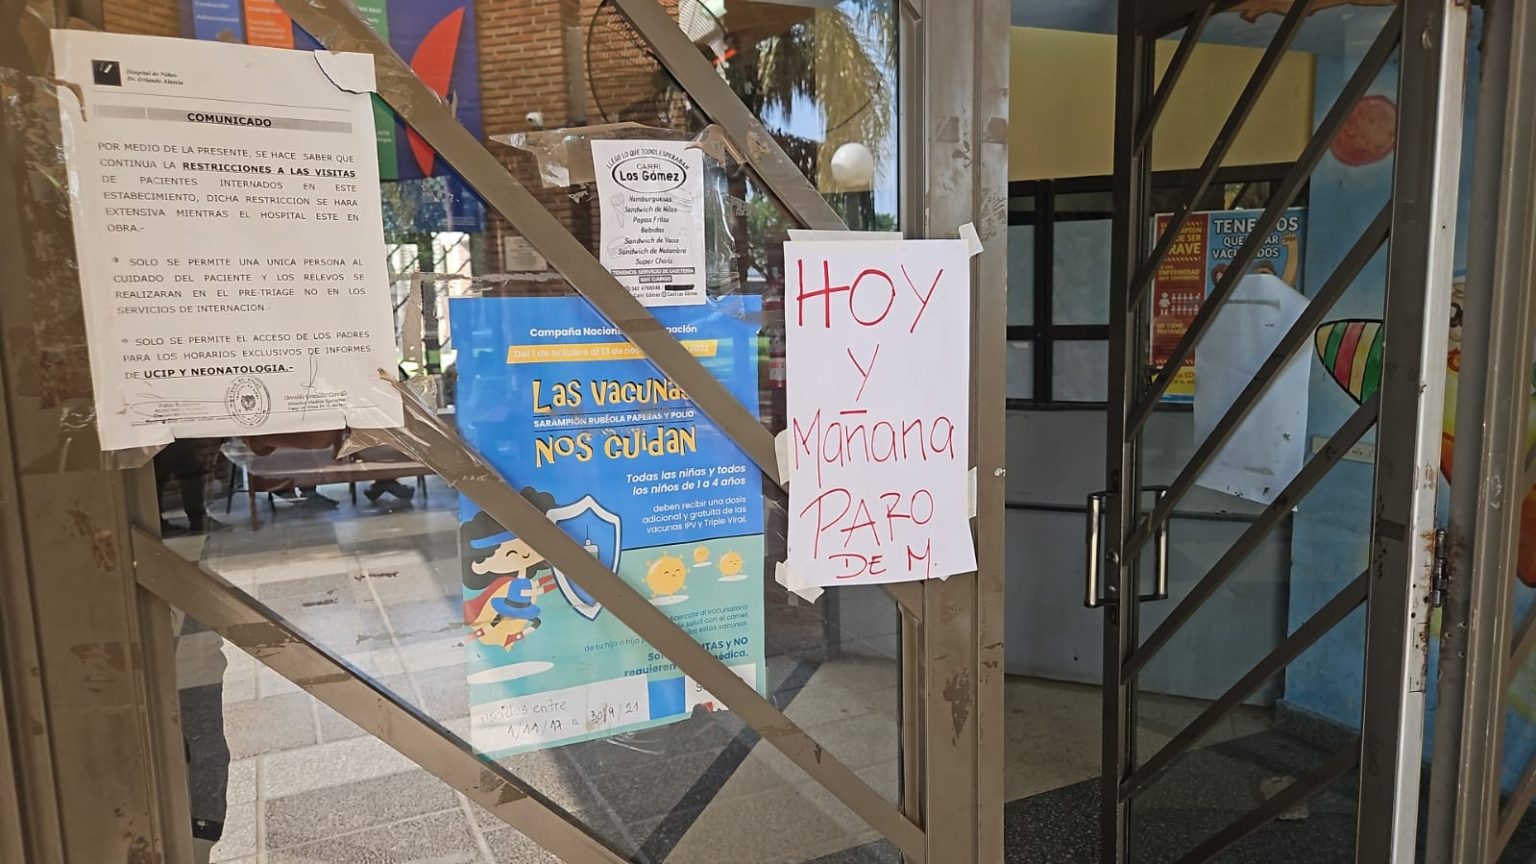 Hospital de Niños
Dr. Orlando Alassia
COMUNICADO
POR MEDIO DE LA PRESENTE, SE HACE SABER QUE
CONTINUA LA RESTRICCIONES A LAS VISITAS
DE PACIENTES INTERNADOS EN ESTE
ESTABECIMIENTO, DICHA RESTRICCION SE HARA
EXTENSIVA MIENTRAS EL HOSPITAL ESTE EN
OBRA.-
* SOLO SE PERMITE UNA UNICA PERSONA AL
CUIDADO DEL PACIENTE Y LOS RELEVOS SE
REALIZARAN EN EL PRE-TRIAGE NO EN LOS
SERVICIOS DE INTERNACION.-
* SOLO SE PERMITE EL ACCESO DE LOS PADRES
PARA LOS HORARIOS EXCLUSIVOS DE INFORMES
DE UCIP Y NEONATOLOGIA.-
LLEGO LO QUE TODOS ESPERABAN
CARRI
Los Gómez
Hamburguesas
Sandwich de Milas
Papas Fritas
Bebidas
Sandwich de Vacio
Sandwich de Matambre
Super Choris
TENEMOS SERVICIO DE CAFETERIA
SIN CARGO
Carri Gómez
Carri Los Gómez
Campaña Nacional
Del 1 de octubre al 13 de
LAS VACUNAS
SARAMPIÓN RUBÉOLA PAPERAS Y POLIO
NOS CUIDAN
Todas las niñas y todos
los niños de 1 a 4 años
deben recibir una dosis
adicional y gratuita de las
vacunas IPV y Triple Viral.
al vacunatorio
de salud con el carnet
de tu hijo o hija
estas vacunas.
Y NO
requieren
nacidos entre
1/11/17 a 30/9/21
HOY
Y
Mañana
PARO
DE M.
TENEMOS
QUE
VACUNADOS
ENFERMEDAD